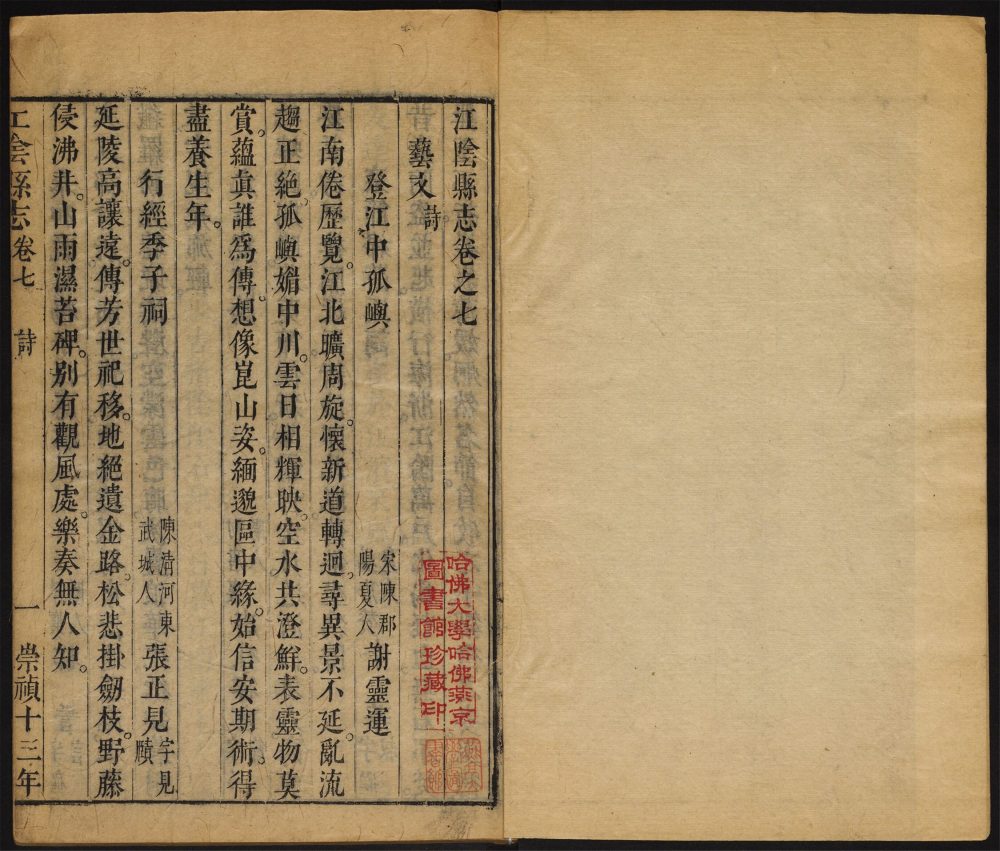 江陰縣志卷之七
藝文 詩
登江中孤嶼
宋陳郡
陽夏人
謝靈運
江南倦歷覽。江北曠周旋。懷新道轉迥。尋異景不延。亂流
趨正絕。孤嶼媚中川。雲日相輝映。空水共澄鮮。表靈物莫
賞。蘊眞誰爲傳。想像崑山姿。緬邈區中緣。始信安期術。得
盡養生年。
行經季子祠
陳清河東
武城人
張正見
字見
賾
延陵高讓遠。傳芳世祀移。地絕遺金路。松悲掛劒枝。野藤
侵沸井。山雨濕苔碑。别有觀風處。樂奏無人知。
江陰縣志 卷七 詩 一 崇禎十三年
哈佛大學哈佛燕京
圖書館珍藏印